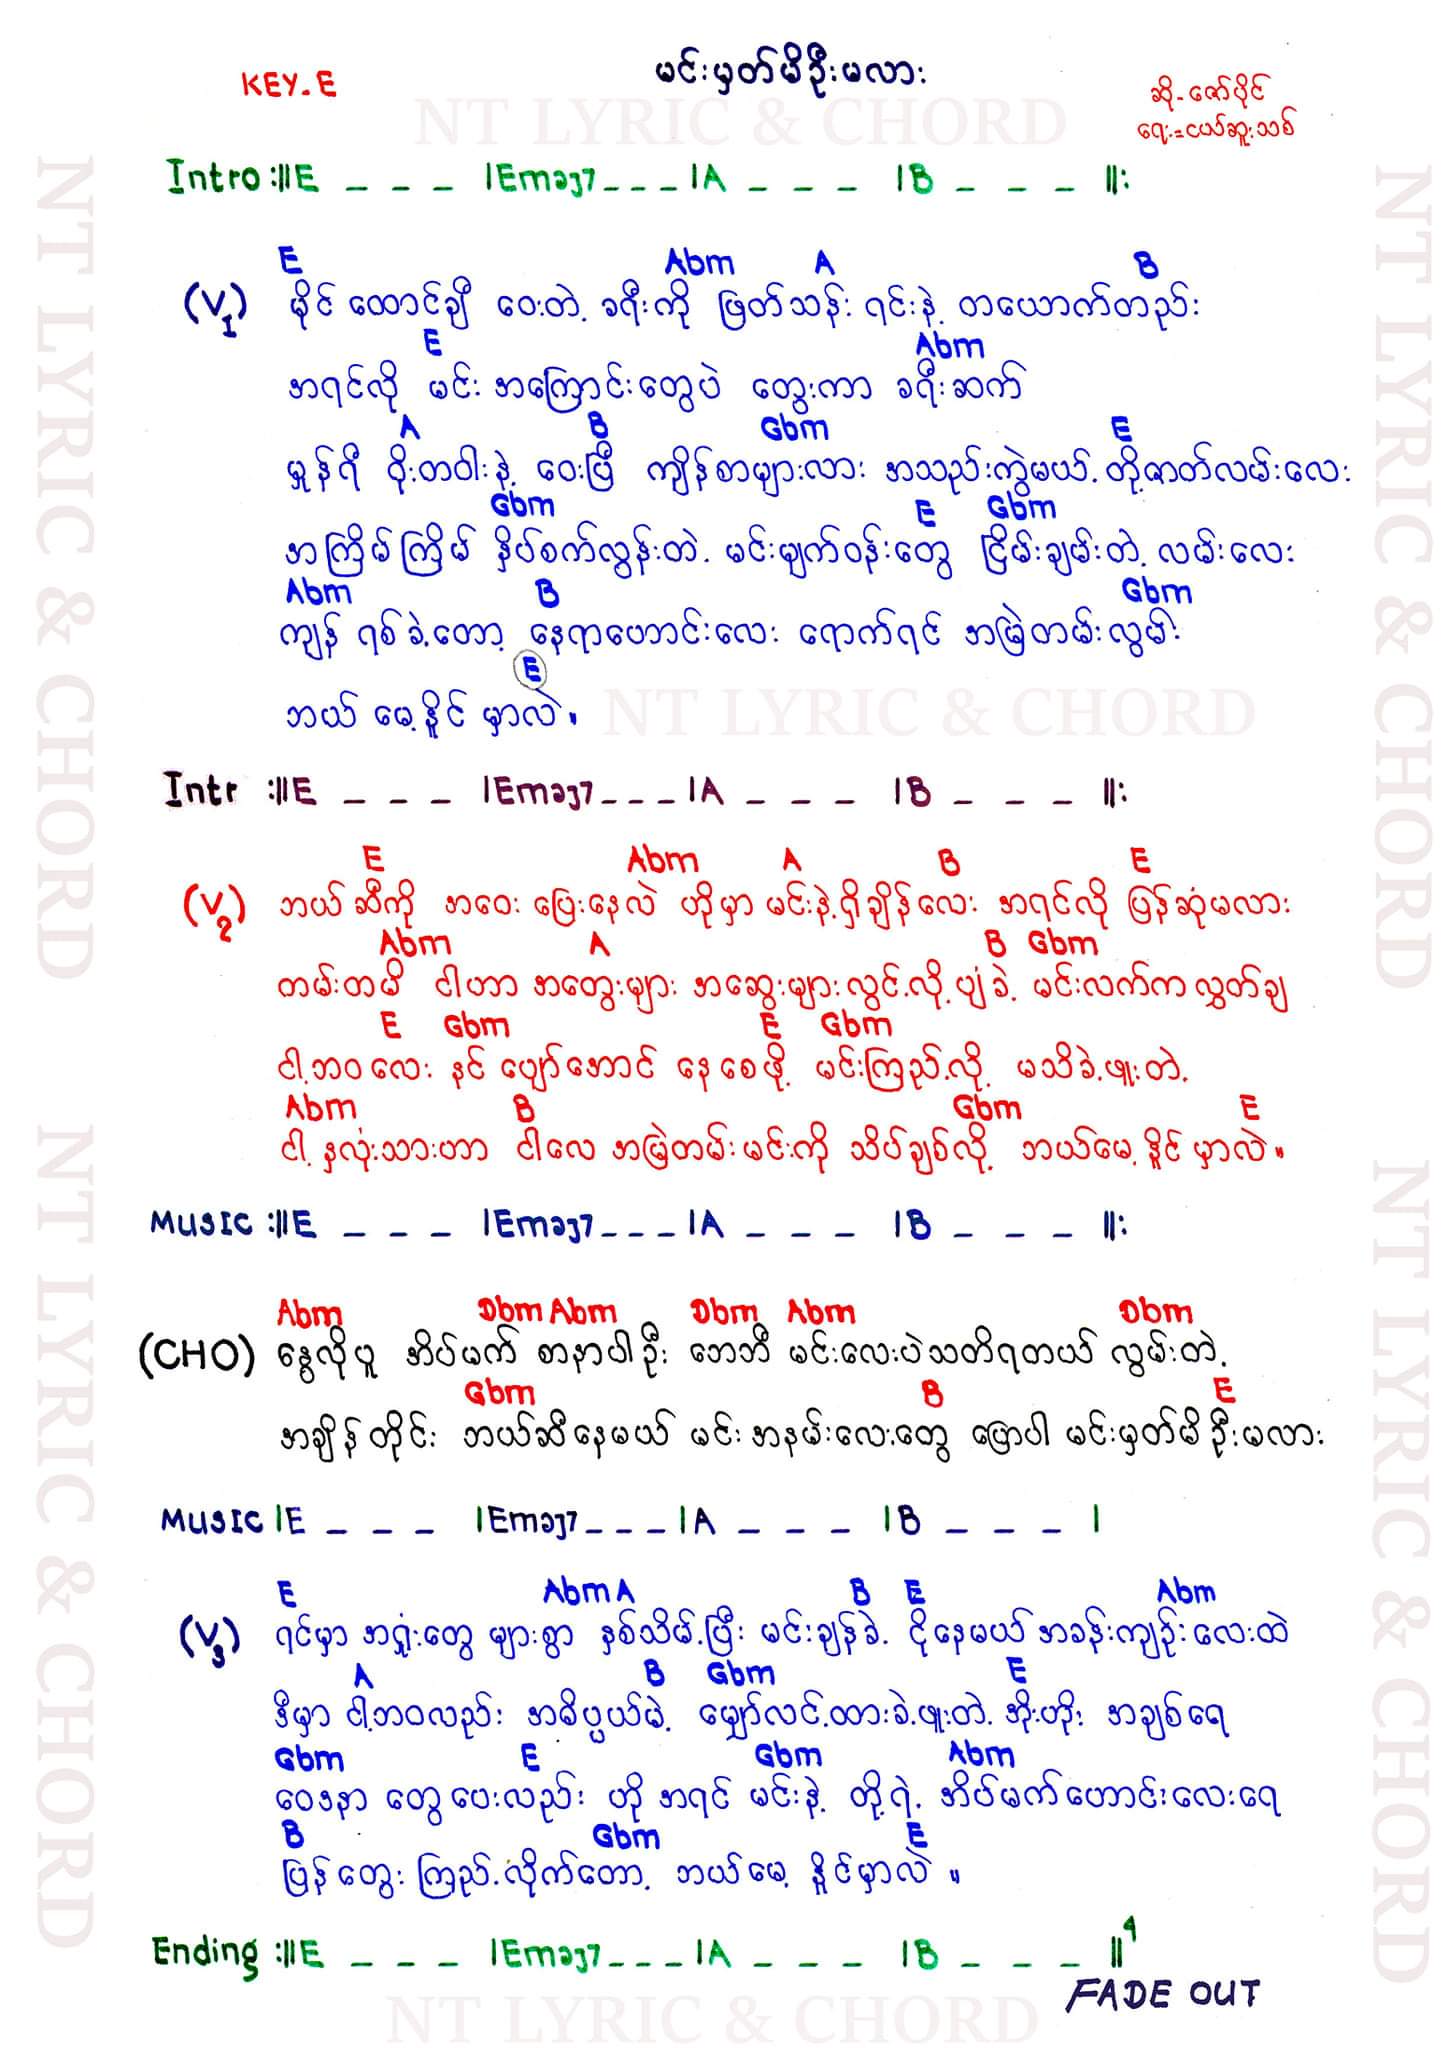 မင်းမှတ်မိဦးမလား
KEY.E
ဆို-ဇော်ပိုင်
ရေး=ငယ်ဆူးသစ်
NT LYRIC & CHORD
Intro :||E _ _ _ |Emaj7 _ _ _ |A _ _ _ |B _ _ _ ||:
E Abm A B
(V1) မိုင်ထောင်ချီ ဝေးတဲ့ ခရီးကို ဖြတ်သန်းရင်းနဲ့ တယောက်တည်း
E Abm
အရင်လို မင်းအကြောင်းတွေပဲ တွေးကာ ခရီးဆက်
A B Gbm E
မှုန်ရီ ဝိုးတဝါးနဲ့ ဝေးပြီ ကျိန်စာများလား အသည်းကွဲမယ့် တို့ဇာတ်လမ်းလေး
Gbm E Gbm
အကြိမ်ကြိမ် နှိပ်စက်လွန်းတဲ့ မင်းမျက်ဝန်းတွေ ငြိမ်းချမ်းတဲ့ လမ်းလေး
Abm B Gbm
ကျန်ရစ်ခဲ့တော့ နေရာဟောင်းလေး ရောက်ရင် အမြဲတမ်းလွမ်း
E
ဘယ်မေ့နိုင်မှာလဲ။
NT LYRIC & CHORD
Intr :||E _ _ _ |Emaj7 _ _ _ |A _ _ _ |B _ _ _ ||:
E Abm A B E
(V2) ဘယ်ဆီကို အဝေးပြေးနေလဲ ဟိုမှာ မင်းနဲ့ရှိချိန်လေး အရင်လို ပြန်ဆုံမလား
Abm A B Gbm
တမ်းတမိ ငါဟာ အတွေးများ အဆွေးများလွင့်လို့ပျံခဲ့ မင်းလက်ကလွှတ်ချ
E Gbm E Gbm
ငါ့ဘဝလေး နင်ပျော်အောင် နေစေဖို့ မင်းကြည့်လို့ မသိခဲ့ဖူးတဲ့
Abm B Gbm E
ငါ့နှလုံးသားဟာ ငါလေ အမြဲတမ်းမင်းကို သိပ်ချစ်လို့ ဘယ်မေ့နိုင်မှာလဲ။
MUSIC :||E _ _ _ |Emaj7 _ _ _ |A _ _ _ |B _ _ _ ||:
Abm Dbm Abm Dbm Abm Dbm
(CHO) နွေလိုပူ အိပ်မက် စာနာပါဦး ဘေဘီ မင်းလေးပဲသတိရတယ် လွမ်းတဲ့
Gbm B E
အချိန်တိုင်း ဘယ်ဆီနေမယ် မင်းအနမ်းလေးတွေ ပြောပါ မင်းမှတ်မိဦးမလား
MUSIC |E _ _ _ |Emaj7 _ _ _ |A _ _ _ |B _ _ _ |
E Abm A B E Abm
(V3) ရင်မှာ အရှုံးတွေ များစွာ နှစ်သိမ့်ပြီး မင်းချန်ခဲ့ ငိုနေမယ် အခန်းကျဉ်းလေးထဲ
A B Gbm E
ဒီမှာ ငါ့ဘဝလည်း အဓိပ္ပယ်မဲ့ မျှော်လင့်ထားခဲ့ဖူးတဲ့ အိုးဟိုး အချစ်ရေ
Gbm E Gbm Abm
ဝေဒနာတွေပေးလည်း ဟိုအရင် မင်းနဲ့ တို့ရဲ့ အိပ်မက်ဟောင်းလေးရေ
B Gbm E
ပြန်တွေးကြည့်လိုက်တော့ ဘယ်မေ့နိုင်မှာလဲ။
Ending :||E _ _ _ |Emaj7 _ _ _ |A _ _ _ |B _ _ _ ||4
FADE OUT
NT LYRIC & CHORD
NT LYRIC & CHORD
NT LYRIC & CHORD
NT LYRIC & CHORD
NT LYRIC & CHORD